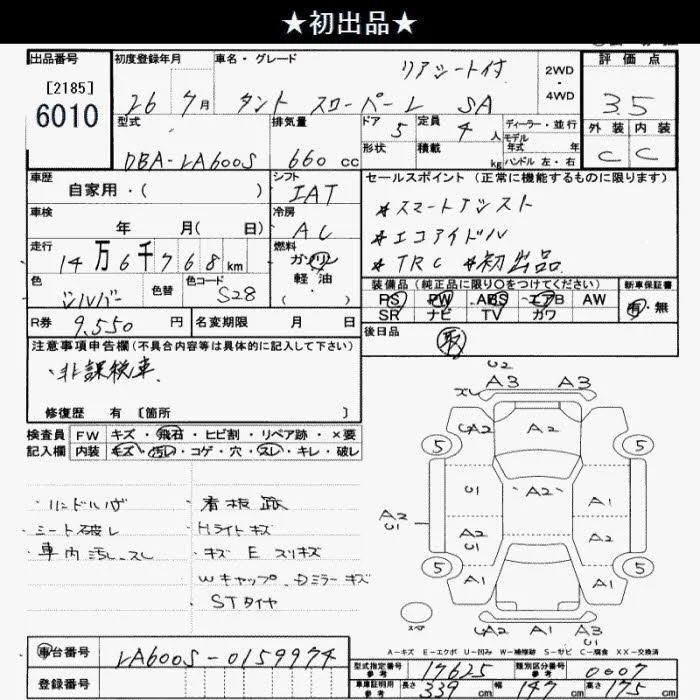 ★初出品★
出品番号 初度登録年月 車名・グレード リアシート付 2WD・4WD 評価点
[2185]
6010
26 7月 タント スローパー L SA 3.5
型式 排気量 ドア 5 定員 4 人 ディーラー・並行 外装 内装
モデル年式 年
DBA-LA600S 660 cc 形状 積載 kg ハンドル 左・右 C C
車歴 シフト セールスポイント (正常に機能するものに限ります)
自家用・( ) IAT
*スマートアシスト
車検 冷房
年 月( 日) AC
*エコアイドル
走行 燃料
14万6千768km ガソリン 軽油 ・( )
*TRC *初出品
色 色替 色コード 装備品 (純正品に限り○をつけてください) 新車保証書
シルバー S28 PS PW ABS エアB AW 有・無
SR ナビ TV カワ
R券 9,550 円 名変期限 月 日 後日品
取
注意事項申告欄(不具合内容等は具体的に記入して下さい)
・非課税車.
修復歴 有 〔箇所 〕
検査員 FW キズ・飛石・ヒビ割・リペア跡・×要
記入欄 内装 キズ・汚レ・コゲ・穴・スレ・キレ・破レ
・ハンドルハゲ ・看板跡
・シート破レ ・Hライトキズ
・車内汚レ、スレ ・キズ E スリキズ
Wキャップ、Dミラーキズ
・STタイヤ
U2
A3 A3
スレ
CA2 A2
5 5
U1 A2 A1
A2 U1
A2 U1 A2 A1
5 A1 A1 5
スペア
CA2 A1 A3
U1
A-キズ E-エクボ U-凹み W-補修跡 S-サビ C-腐食 XX-交換済
車台番号 LA600S-0159974
登録番号
型式指定番号 参考 17625 類別区分番号 参考 0007
車庫証明用 参考 長さ 339 cm 幅 147 cm 高さ 175 cm